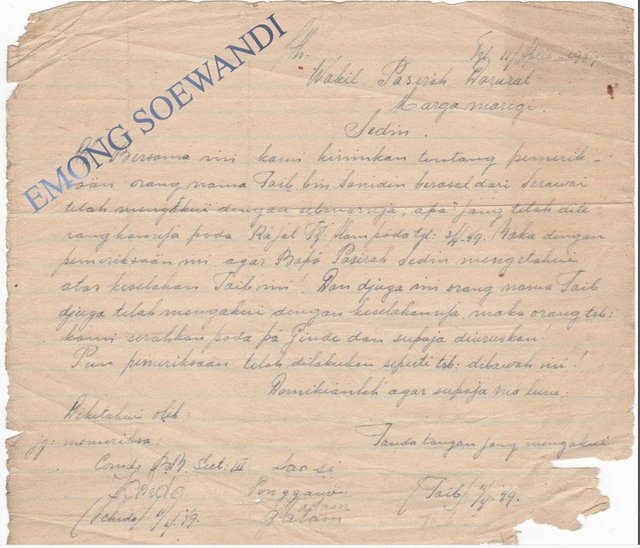 EMONG SOEWANDI
Wakil Pasirah Dararat
Marga marigi
Sedin
Bersama ini kami kirimkan tentang pemerik-
saan orang nama Taib bin berasal dari Serawai
telah mengakui dengan sebenarnja, apa jang telah dite-
rangkannja pada Rajat Tg: pada tgl: 49. Maka dengan
pemeriksaan ini agar Bapa Pasirah Sedin mengetahui
atas keselahan Taib ini! Dan djuga ini orang nama Taib
djuga telah mengakui dengan keselahannja, maka orang tsb:
kami serahkan pada pa Ginde dan supaja diuruskan!
Pun pemeriksaan telah dilakukan seperti tsb: dibawah ini!
Demikianlah agar supaja
Diketahui oleh:
jg: memeriksa:
Tanda tangan jang mengakui
Comdj Sect: III
Saksi
Tonggawo
(Taib) 49.
Matam